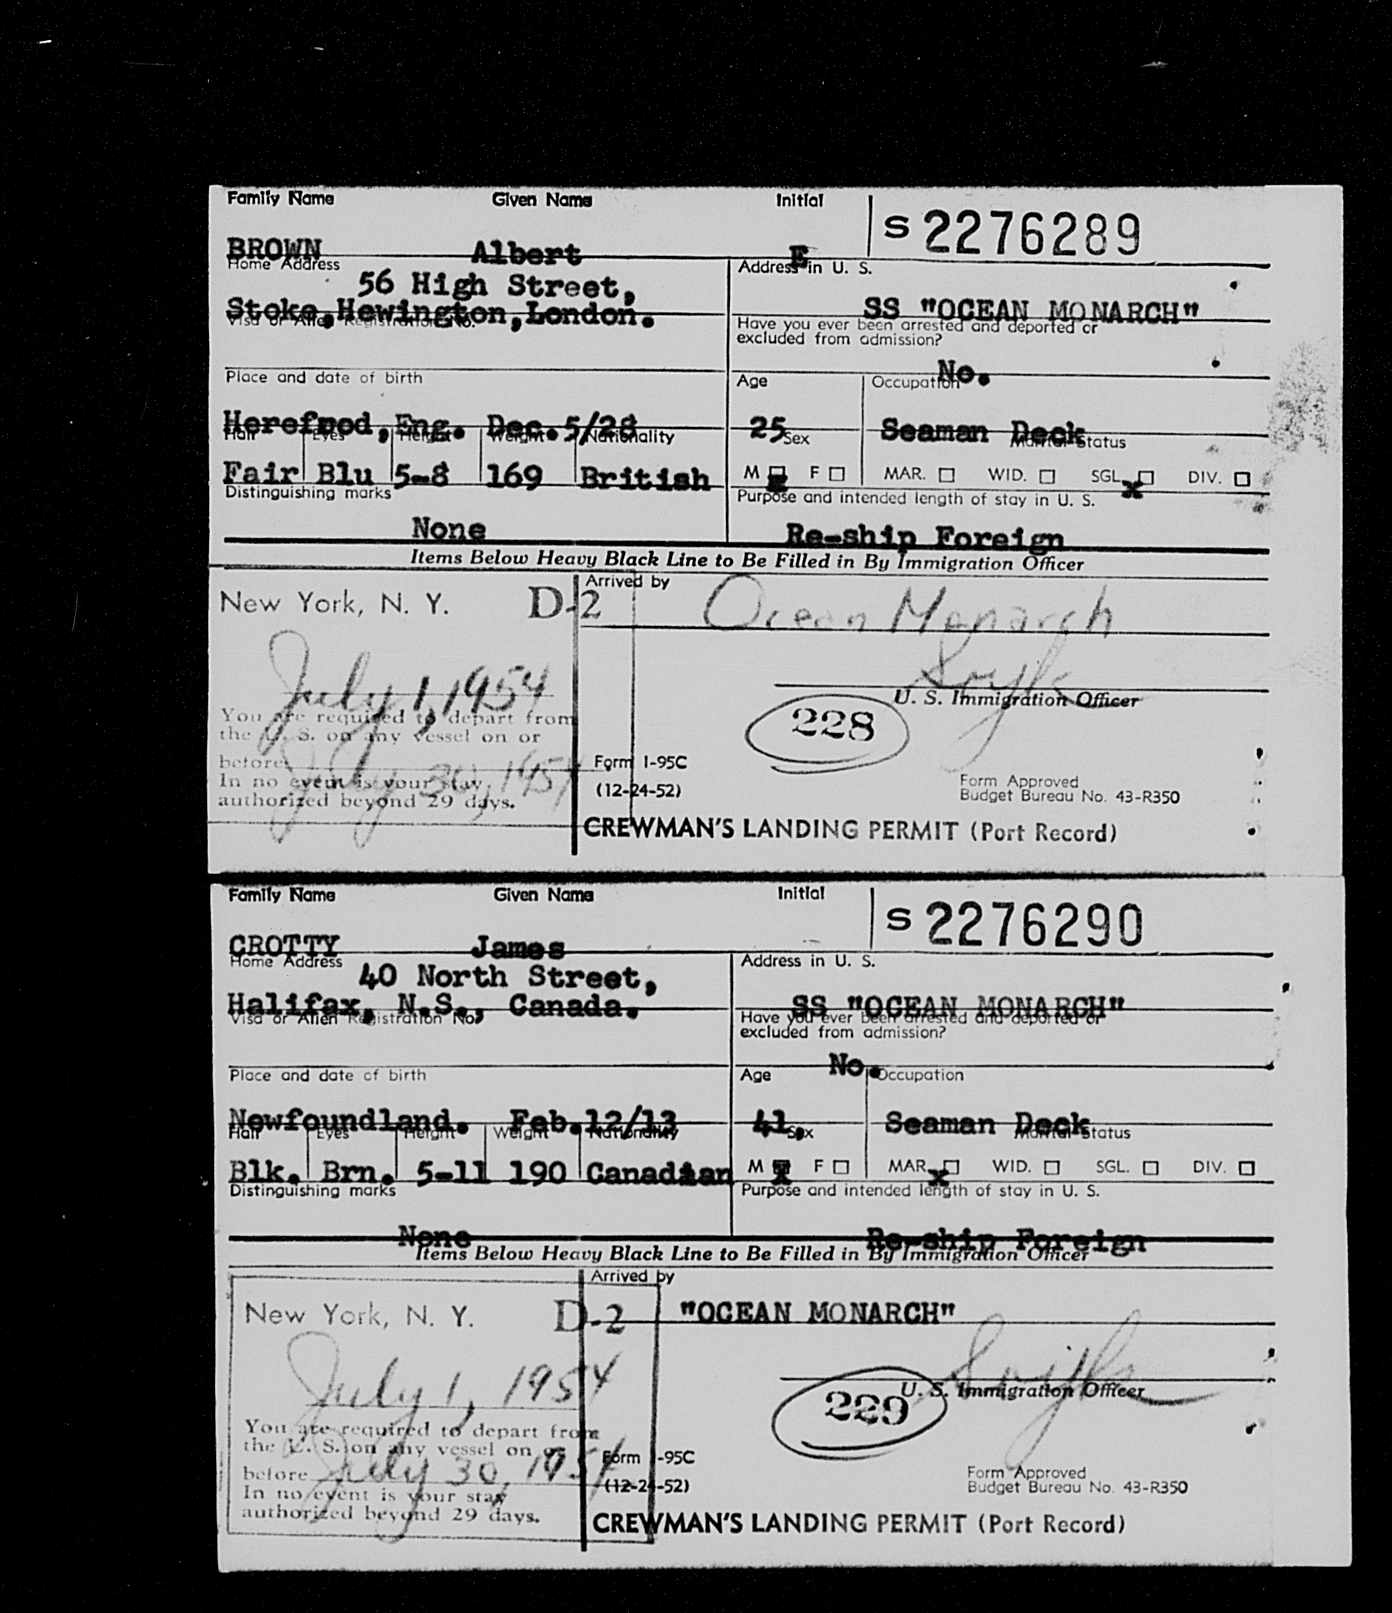 Family Name Given Name Initial S 2276289
BROWN Albert E
Home Address Address in U. S.
56 High Street,
Stoke,Hewington,London. SS "OCEAN MONARCH"
Visa or Alien Registration No. Have you ever been arrested and deported or
excluded from admission?
No.
Place and date of birth Age Occupation
Dec. 5/28 25 Seaman Deck
Hair Eyes Height Weight Nationality Sex Marital Status
Fair Blu 5-8 169 British M F MAR. WID. SGL. x DIV.
Distinguishing marks Purpose and intended length of stay in U. S.
None Re-ship Foreign
Items Below Heavy Black Line to Be Filled in By Immigration Officer
Arrived by
New York, N. Y. D-2 Ocean Monarch
July 1, 1954
U. S. Immigration Officer
You are required to depart from 228
the U. S. on any vessel on or
before July 30, 1954 Form I-95C
In no event is your stay (12-24-52) Form Approved
authorized beyond 29 days. Budget Bureau No. 43-R350
CREWMAN'S LANDING PERMIT (Port Record)
Family Name Given Name Initial S 2276290
CROTTY James
Home Address Address in U. S.
40 North Street,
Halifax, N.S., Canada. SS "OCEAN MONARCH"
Visa or Alien Registration No. Have you ever been arrested and deported or
excluded from admission?
No.
Place and date of birth Age Occupation
Newfoundland. Feb.12/13 41 Seaman Deck
Hair Eyes Height Weight Nationality Sex Marital Status
Blk. Brn. 5-11 190 Canadian M x F MAR. x WID. SGL. DIV.
Distinguishing marks Purpose and intended length of stay in U. S.
None Re-ship Foreign
Items Below Heavy Black Line to Be Filled in By Immigration Officer
Arrived by
New York, N. Y. D-2 "OCEAN MONARCH"
July 1, 1954
U. S. Immigration Officer
229
You are required to depart from
the U. S. on any vessel on or
before July 30, 1954 Form I-95C
In no event is your stay (12-24-52) Form Approved
authorized beyond 29 days. Budget Bureau No. 43-R350
CREWMAN'S LANDING PERMIT (Port Record)